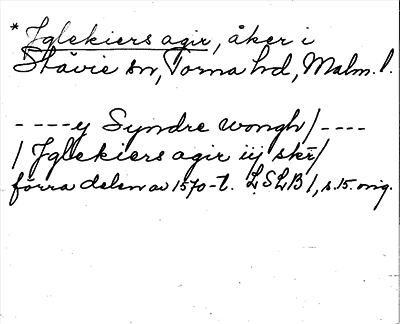 * Iglekiers agir, åker i
Stävie sn, Torna hd, Malm. l.
----y Syndre wongh/----
/ Iglekiers agir iij skr/
förra delen av 1570-t. LSLB 1, s. 15. orig.